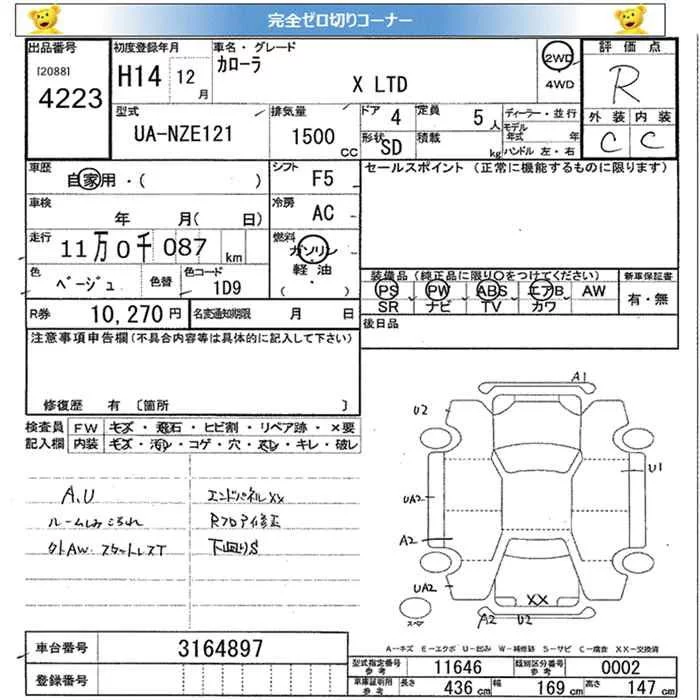 完全ゼロ切りコーナー
出品番号
[2088]
4223
初度登録年月
H14 12月
車名・グレード
カローラ
X LTD
2WD
4WD
評価点
R
外装 内装
C C
型式
UA-NZE121
排気量
1500 CC
ドア 4
定員 5人
形状 SD
積載 kg
ディーラー・並行
モデル年式 年
ハンドル 左・右
車歴
自家用・( )
シフト F5
車検
年 月( 日)
冷房 AC
走行
11万0千087 km
燃料
ガソリン・軽油・( )
色
ベージュ
色替
色コード
1D9
R券 10,270円
名変通知期限 月 日
セールスポイント (正常に機能するものに限ります)
装備品 (純正品に限り〇をつけてください)
PS PW ABS エアB AW
SR ナビ TV カワ
新車保証書
有・無
後日品
注意事項申告欄(不具合内容等は具体的に記入して下さい)
修復歴 有 〔箇所 〕
検査員記入欄
FW キズ・飛石・ヒビ割・リペア跡・×要
内装 キズ・汚レ・コゲ・穴・スレ・キレ・破レ
A.U
エンドパネルXX
Rフロア修正
外AW.スタットレスT
下回りS
A1
U2
U1
UA2
A2
UA2
XX
A2 U2
スペア
A-キズ E-エクボ U-凹み W-補修跡 S-サビ C-腐食 XX-交換済
車台番号 3164897
登録番号
型式指定番号 参考 11646
類別区分番号 参考 0002
車庫証明用 参考 長さ 436 cm 幅 169 cm 高さ 147 cm